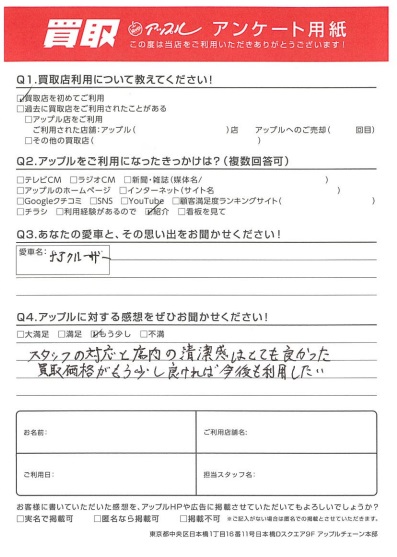 買取 アップル アンケート用紙
この度は当店をご利用いただきありがとうございます!
Q1.買取店利用について教えてください!
☑買取店を初めてご利用
□過去に買取店をご利用されたことがある
□アップル店をご利用
ご利用された店舗:アップル( )店 アップルへのご売却( 回目)
□その他の買取店( )
Q2.アップルをご利用になったきっかけは?(複数回答可)
□テレビCM □ラジオCM □新聞・雑誌(媒体名/ )
□アップルのホームページ □インターネット(サイト名 )
□Googleクチコミ □SNS □YouTube □顧客満足度ランキングサイト( )
□チラシ □利用経験があるので ☑紹介 □看板を見て
Q3.あなたの愛車と、その思い出をお聞かせください!
愛車名: FJクルーザー
Q4.アップルに対する感想をぜひお聞かせください!
□大満足 □満足 ☑もう少し □不満
スタッフの対応と店内の清潔感はとても良かった
買取価格がもう少し良ければ今後も利用したい
お名前: ご利用店舗名:
ご利用日: 担当スタッフ名:
お客様に書いていただいた感想を、アップルHPや広告に掲載させていただいてもよろしいでしょうか?
□実名で掲載可 □匿名なら掲載可 □掲載不可 ※ご記入がない場合は匿名での掲載とさせていただきます。
東京都中央区日本橋1丁目16番11号日本橋Dスクエア9F アップルチェーン本部